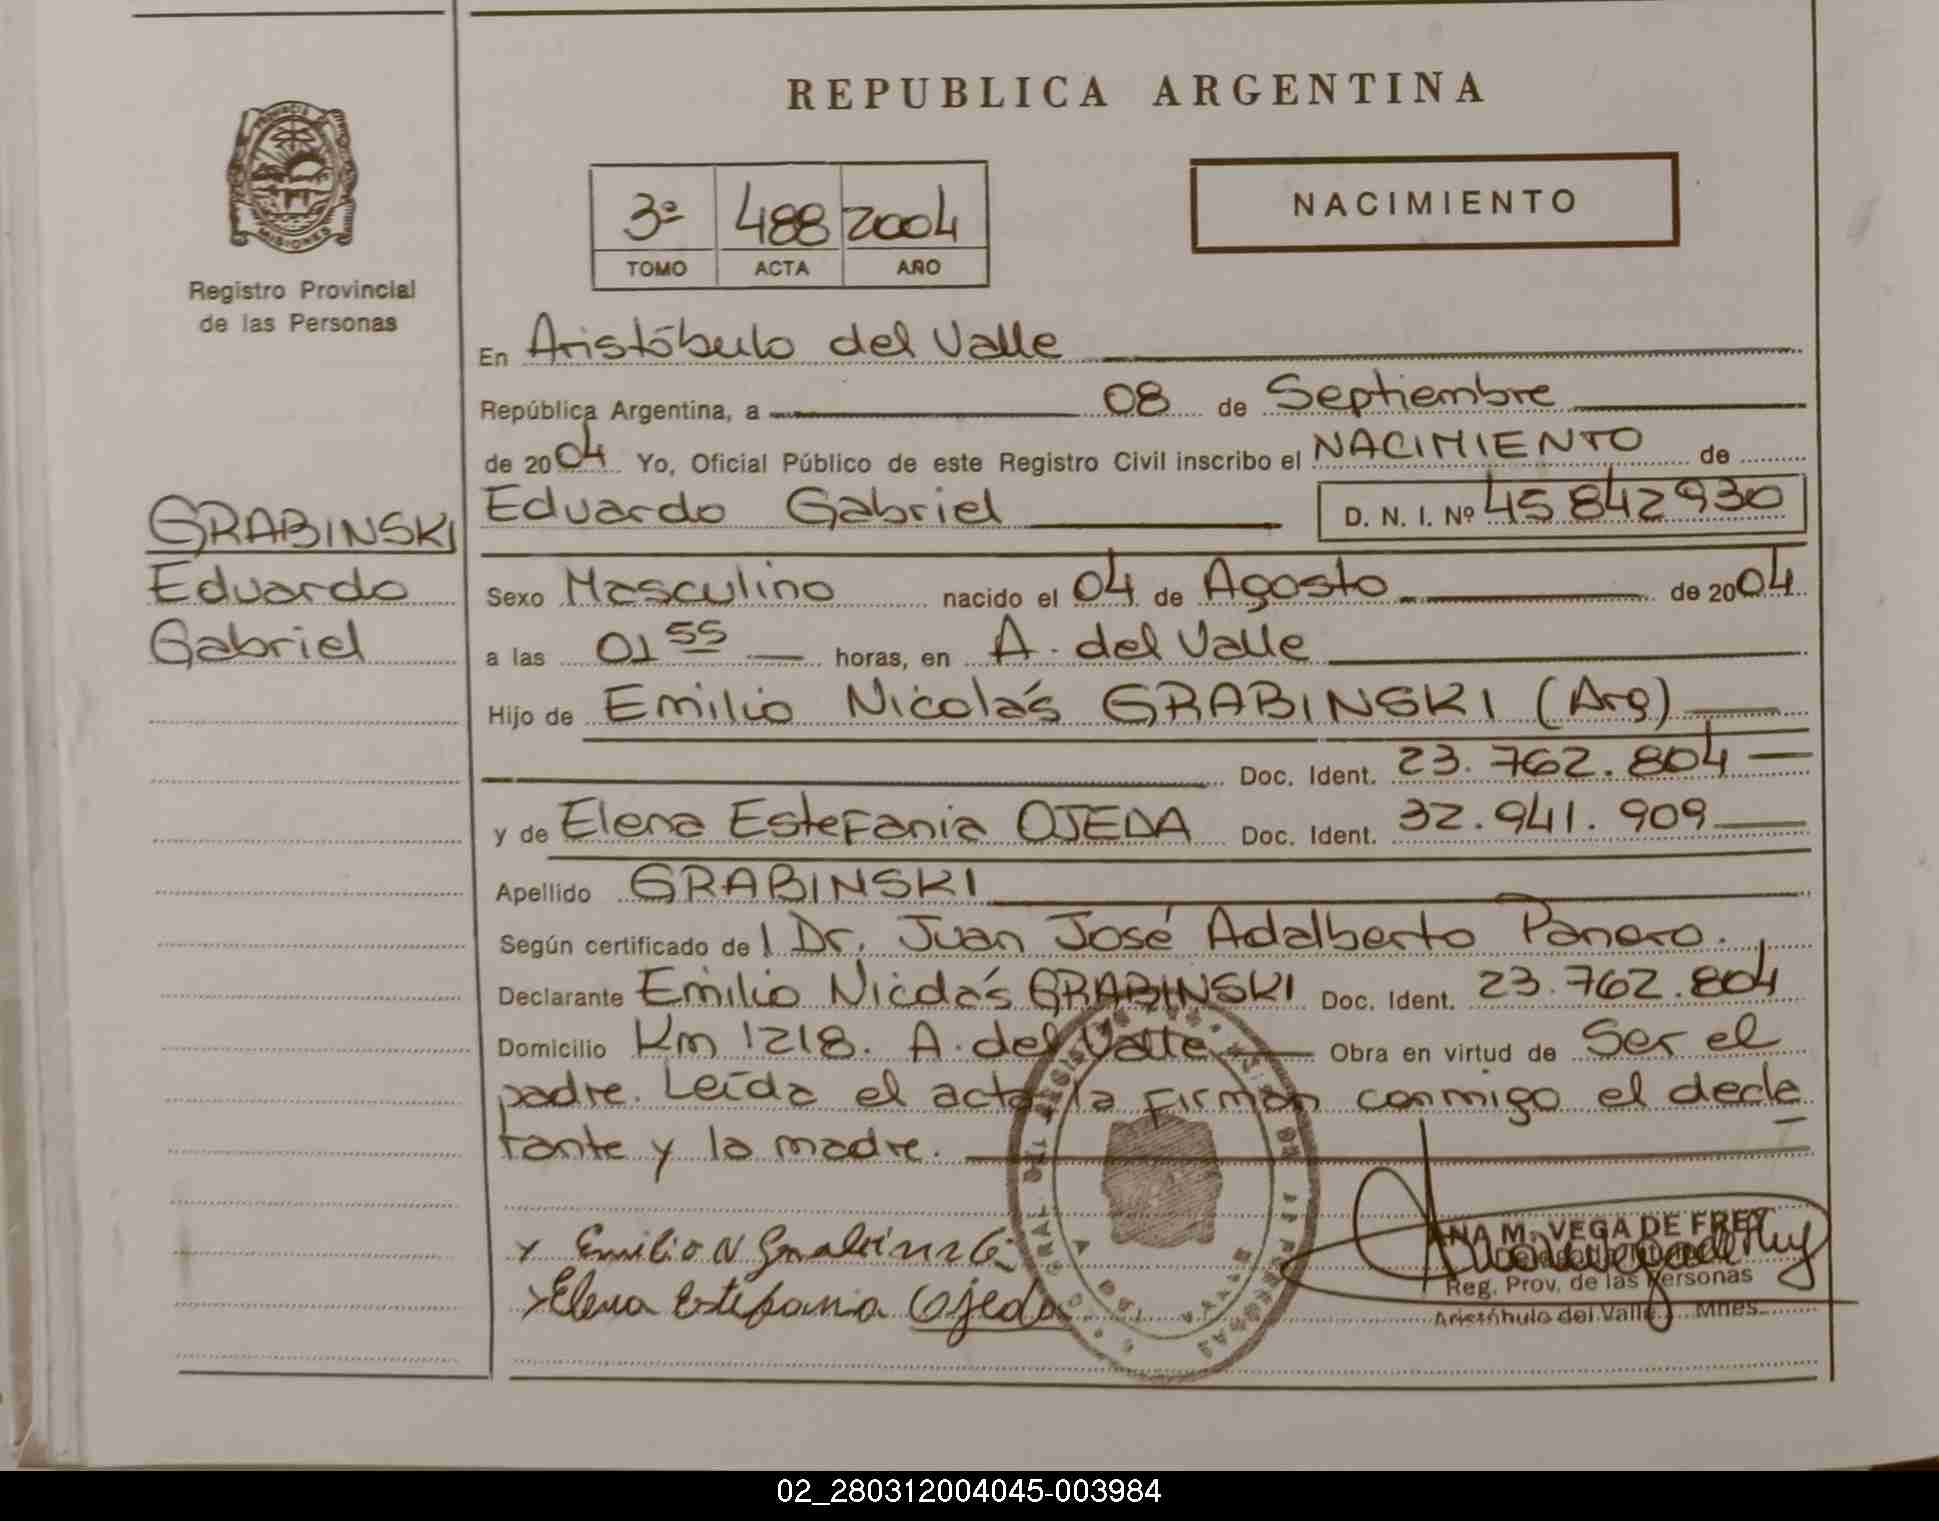 REPUBLICA ARGENTINA
PROVINCIA DE
MISIONES
Registro Provincial
de las Personas
3º 488 2004
TOMO ACTA AÑO
NACIMIENTO
En Aristóbulo del Valle
República Argentina, a 08 de Septiembre
de 2004 Yo, Oficial Público de este Registro Civil inscribo el NACIMIENTO de
GRABINSKI
Eduardo
Gabriel
Eduardo Gabriel D. N. I. Nº 45 842 930
Sexo Masculino nacido el 04 de Agosto de 2004
a las 01 55 horas, en A. del Valle
Hijo de Emilio Nicolás GRABINSKI (Arg)
Doc. Ident. 23.762.804
y de Elena Estefania OJEDA Doc. Ident. 32.941.909
Apellido GRABINSKI
Según certificado de l Dr. Juan José Adalberto Panero.
Declarante Emilio Nicolás GRABINSKI Doc. Ident. 23.762.804
Domicilio Km 1218. A. del Valle Obra en virtud de Ser el
padre. Leída el acta la firman conmigo el decla
rante y la madre.
Emilio N Grabinski
Elena Estefania Ojeda
ANA M. VEGA DE FREY
Reg. Prov. de las Personas
Aristóbulo del Valle Mnes.
02_280312004045-003984